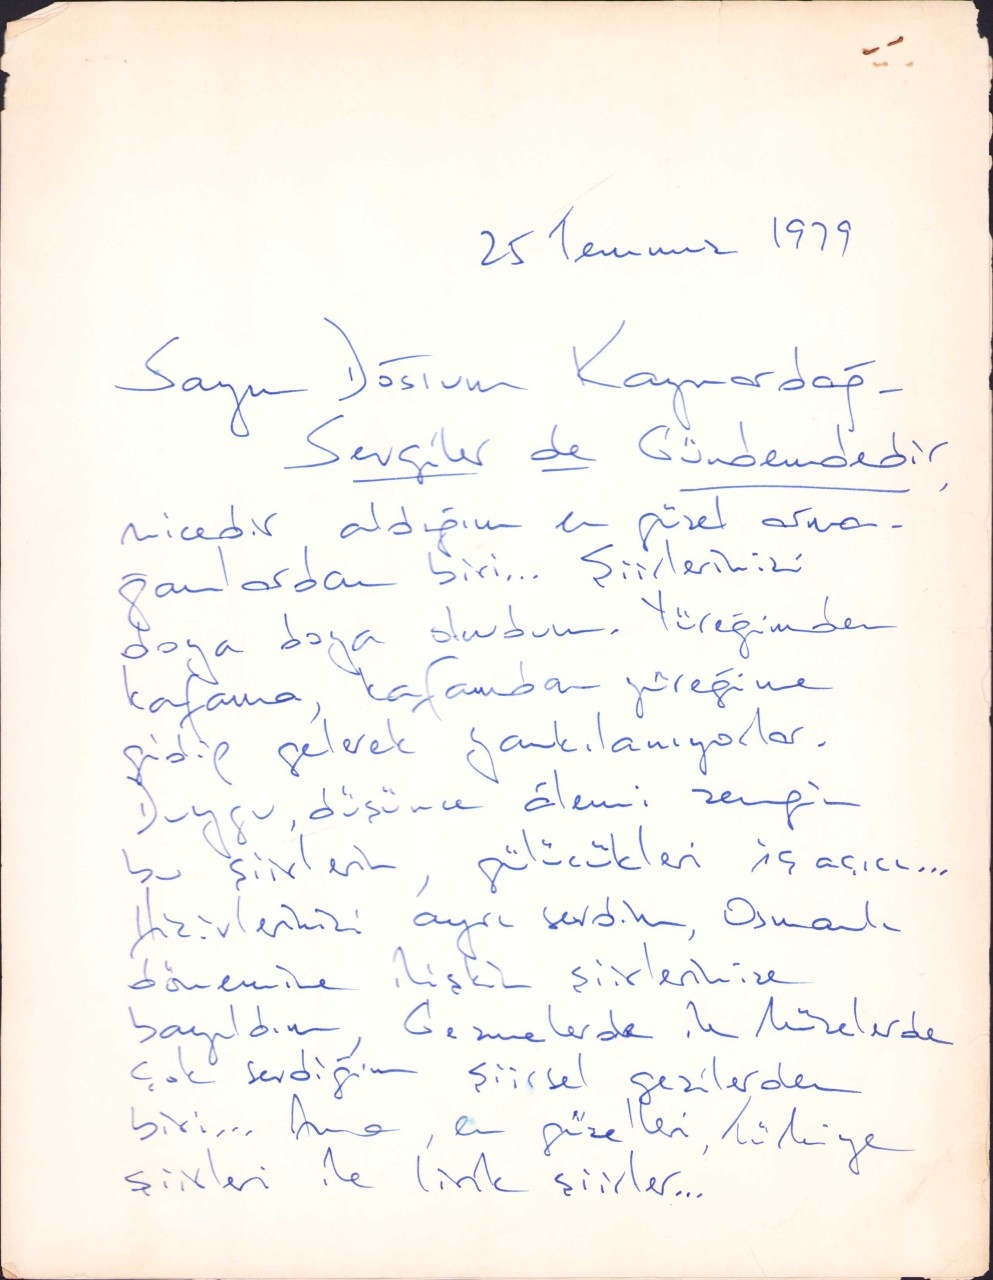 25 Temmuz 1979
Sayın Dostum Kaynardağ -
Sevgiler de Gündemdedir,
nicedir aldığım en güzel arma-
ğanlardan biri... Şiirlerinizi
doya doya okudum. Yüreğimden
kafama, kafamdan yüreğime
gidip gelerek yankılanıyorlar.
Duygu, düşünce âlemi zengin
bu şiirlerin, gülücükleri iç açıcı...
Hicivlerinizi ayrı sevdim, Osmanlı
dönemine ilişkin şiirlerinize
bayıldım, Gezmelerde ile Müzelerde
çok sevdiğim şiirsel gezilerden
biri... Ama, en güzelleri, Türkiye
şiirleri ile lirik şiirler...